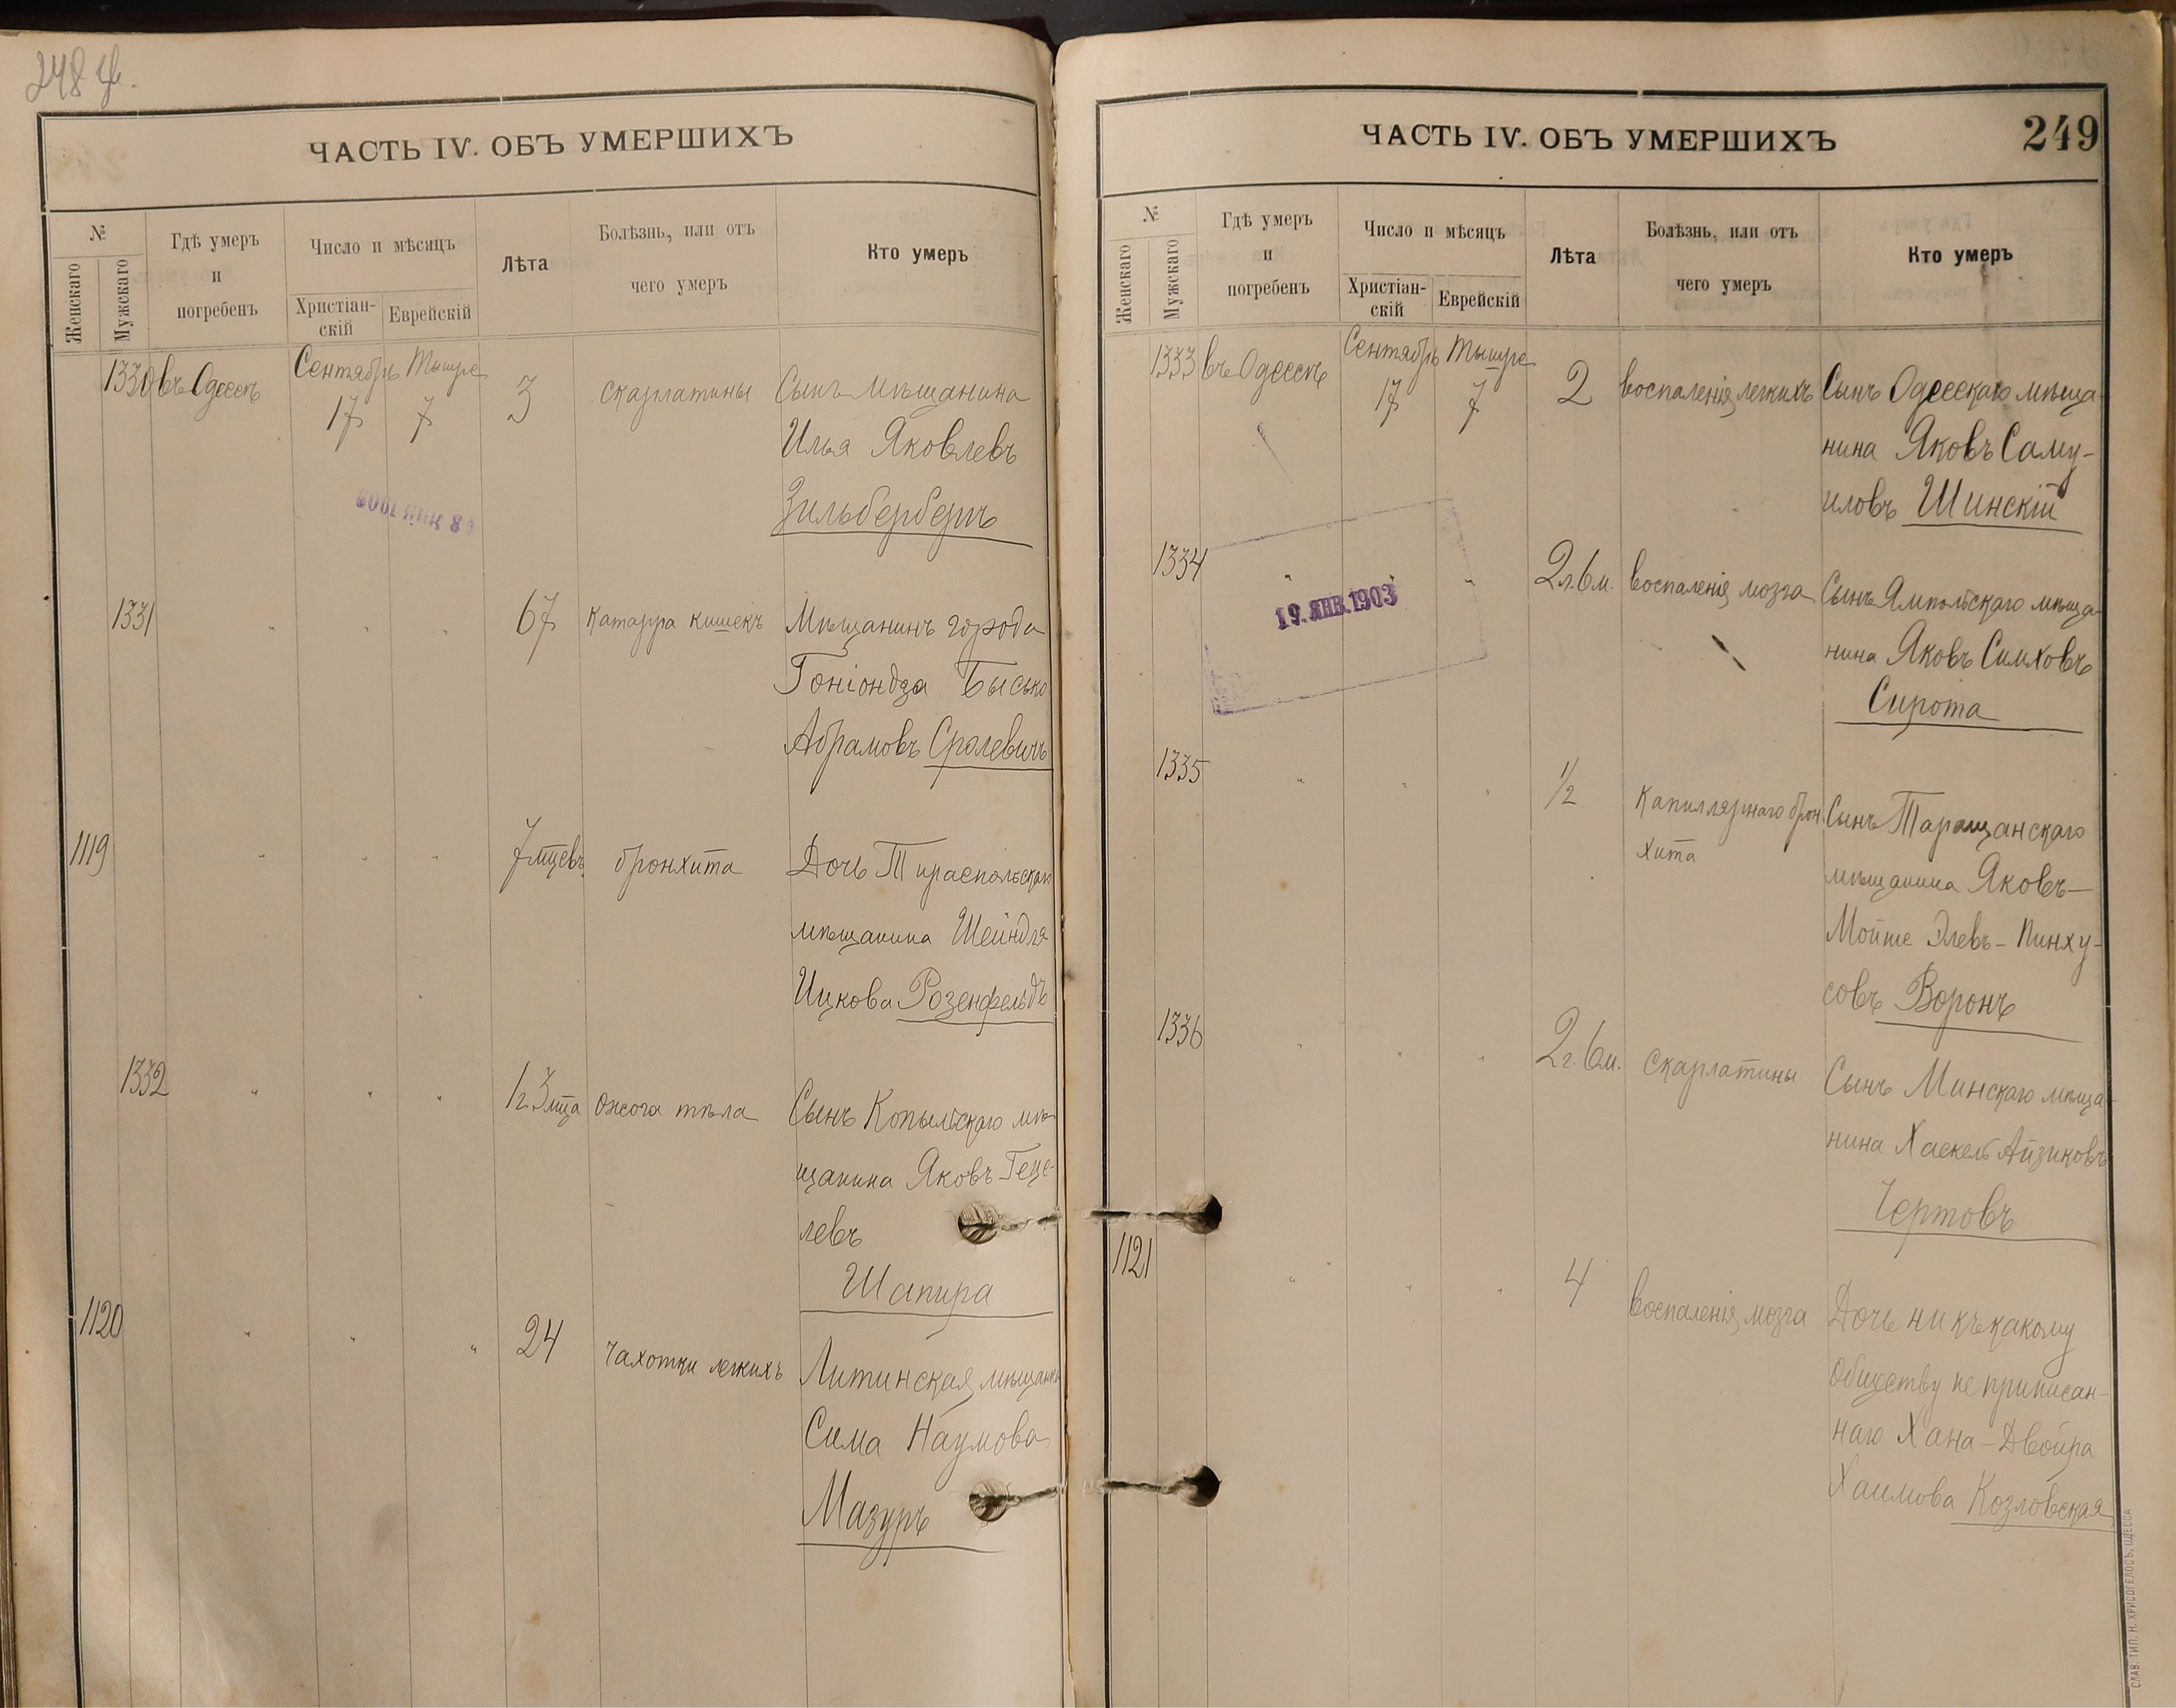 248 об.
ЧАСТЬ IV. ОБЪ УМЕРШИХЪ
№
Женскаго
Мужскаго
Гдѣ умеръ
и
погребенъ
Число и мѣсяцъ
Христіан-
скій
Еврейскій
Лѣта
Болѣзнь, или отъ
чего умеръ
Кто умеръ
1330 въ Одессѣ Сентябрь 17 Тышре 7 3 скарлатины Сынъ мѣщанина
Илья Яковлевъ
Зильбербергъ
1331 " " " 67 катарра кишекъ Мѣщанинъ города
Гоніондза Бысько
Абрамовъ Сролевичъ
1119 " " " 7 мцевъ бронхита Дочь Тираспольскаго
мѣщанина Шейндля
Ицкова Розенфельдъ
1332 " " " 1 г. 3 мца ожога тѣла Сынъ Копыльскаго мѣ-
щанина Яковъ Геце-
левъ
Шапира
1120 " " " 24 чахотки легкихъ Литинская мѣщанка
Сима Наумова
Мазуръ
ЧАСТЬ IV. ОБЪ УМЕРШИХЪ
249
№
Женскаго
Мужскаго
Гдѣ умеръ
и
погребенъ
Число и мѣсяцъ
Христіан-
скій
Еврейскій
Лѣта
Болѣзнь, или отъ
чего умеръ
Кто умеръ
1333 въ Одессѣ Сентябрь 17 Тышре 7 2 воспаленія легкихъ Сынъ Одесскаго мѣща-
нина Яковъ Саму-
иловъ Шинскій
1334 " " " 2 л. 6 м. воспаленія мозга Сынъ Ямпольскаго мѣща-
нина Яковъ Симховъ
Сирота
19. ЯНВ. 1903
1335 " " " 1/2 капиллярнаго брон- Сынъ Таращанскаго
хита
мѣщанина Яковъ-
Мойше Элевъ-Пинху-
совъ Воронъ
1336 " " " 2 г. 6 м. скарлатины Сынъ Минскаго мѣща-
нина Хаскель Айзиковъ
Чертовъ
1121 " " " 4 воспаленія мозга Дочь ни къ какому
обществу не приписан-
наго Хана-Двойра
Хаимова Козловская
СЛАВ. ТИП. Н. ХРИСОГЕЛОСЪ, ОДЕССА